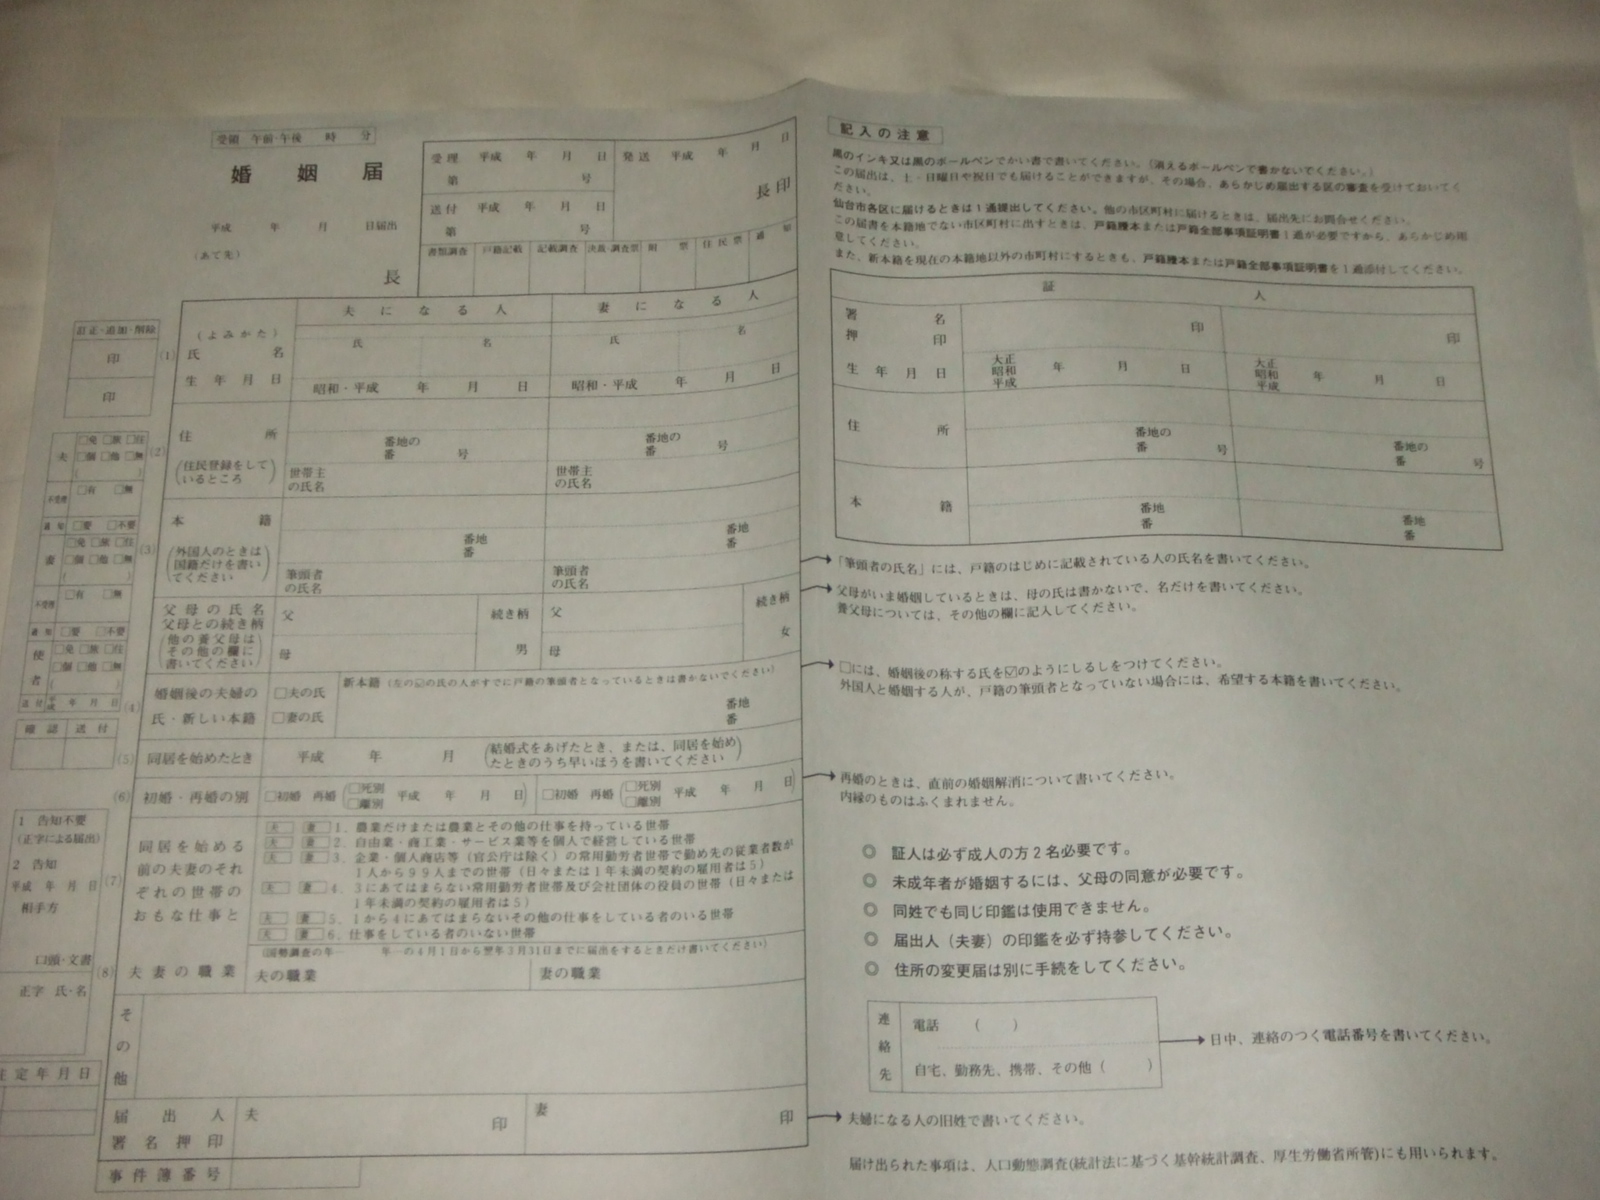 受領 午前・午後 時 分
婚姻届
平成 年 月 日届出
(あて先)
長
受理 平成 年 月 日
第 号
送付 平成 年 月 日
第 号
発送 平成 年 月 日
長印
書類調査 戸籍記載 記載調査 決裁・調査票 附票 住民票 通知
訂正・追加・削除
印
印
夫になる人 妻になる人
(1)
(よみかた)
氏名
氏 名 氏 名
生年月日 昭和・平成 年 月 日 昭和・平成 年 月 日
(2)
住所
(住民登録をしているところ)
番地の 番 号 番地の 番 号
世帯主の氏名 世帯主の氏名
(3)
本籍
(外国人のときは国籍だけを書いてください)
番地 番 番地 番
筆頭者の氏名 筆頭者の氏名
父母の氏名
父母との続き柄
(他の養父母はその他の欄に書いてください)
父 続き柄 父 続き柄
母 男 母 女
(4)
婚姻後の夫婦の
氏・新しい本籍
□夫の氏
□妻の氏
新本籍(左の☑の氏の人がすでに戸籍の筆頭者となっているときは書かないでください)
番地
番
(5)
同居を始めたとき 平成 年 月 (結婚式をあげたとき、または、同居を始めたときのうち早いほうを書いてください)
(6)
初婚・再婚の別 □初婚 再婚(□死別 □離別 平成 年 月 日) □初婚 再婚(□死別 □離別 平成 年 月 日)
(7)
同居を始める
前の夫妻のそれ
ぞれの世帯の
おもな仕事と
夫 妻 1. 農業だけまたは農業とその他の仕事を持っている世帯
夫 妻 2. 自由業・商工業・サービス業等を個人で経営している世帯
夫 妻 3. 企業・個人商店等(官公庁は除く)の常用勤労者世帯で勤め先の従業者数が
1人から99人までの世帯(日々または1年未満の契約の雇用者は5)
夫 妻 4. 3にあてはまらない常用勤労者世帯及び会社団体の役員の世帯(日々または
1年未満の契約の雇用者は5)
夫 妻 5. 1から4にあてはまらないその他の仕事をしている者のいる世帯
夫 妻 6. 仕事をしている者のいない世帯
(8)
夫妻の職業
(国勢調査の年― 年―の4月1日から翌年3月31日までに届出をするときだけ書いてください)
夫の職業 妻の職業
その他
届出人
署名押印
夫 印 妻 印
事件簿番号
夫 □免 □旅 □住
□個 □他 □無
( )
不受理 □有 □無
通知 □要 □不要
妻 □免 □旅 □住
□個 □他 □無
( )
不受理 □有 □無
通知 □要 □不要
使者 □免 □旅 □住
□個 □他 □無
( )
送付 平成 年 月 日
確認 送付
1 告知不要
(正字による届出)
2 告知
平成 年 月 日
相手方
口頭・文書
正字 氏・名
定年月日
記入の注意
黒のインキ又は黒のボールペンでかい書で書いてください。(消えるボールペンで書かないでください。)
この届出は、土・日曜日や祝日でも届けることができますが、その場合、あらかじめ届出する区の審査を受けておいてく
ださい。
仙台市各区に届けるときは1通提出してください。他の市区町村に届けるときは、届出先にお問合せください。
この届書を本籍地でない市区町村に出すときは、戸籍謄本または戸籍全部事項証明書1通が必要ですから、あらかじめ用
意してください。
また、新本籍を現在の本籍地以外の市町村にするときも、戸籍謄本または戸籍全部事項証明書を1通添付してください。
証人
署名
押印
印 印
生年月日 大正 昭和 平成 年 月 日 大正 昭和 平成 年 月 日
住所
番地の 番 号 番地の 番 号
本籍
番地 番 番地 番
「筆頭者の氏名」には、戸籍のはじめに記載されている人の氏名を書いてください。
父母がいま婚姻しているときは、母の氏は書かないで、名だけを書いてください。
養父母については、その他の欄に記入してください。
□には、婚姻後の称する氏を☑のようにしるしをつけてください。
外国人と婚姻する人が、戸籍の筆頭者となっていない場合には、希望する本籍を書いてください。
再婚のときは、直前の婚姻解消について書いてください。
内縁のものはふくまれません。
◎ 証人は必ず成人の方2名必要です。
◎ 未成年者が婚姻するには、父母の同意が必要です。
◎ 同姓でも同じ印鑑は使用できません。
◎ 届出人(夫妻)の印鑑を必ず持参してください。
◎ 住所の変更届は別に手続をしてください。
連絡先
電話 ( )
自宅、勤務先、携帯、その他( )
日中、連絡のつく電話番号を書いてください。
夫婦になる人の旧姓で書いてください。
届け出られた事項は、人口動態調査(統計法に基づく基幹統計調査、厚生労働省所管)にも用いられます。